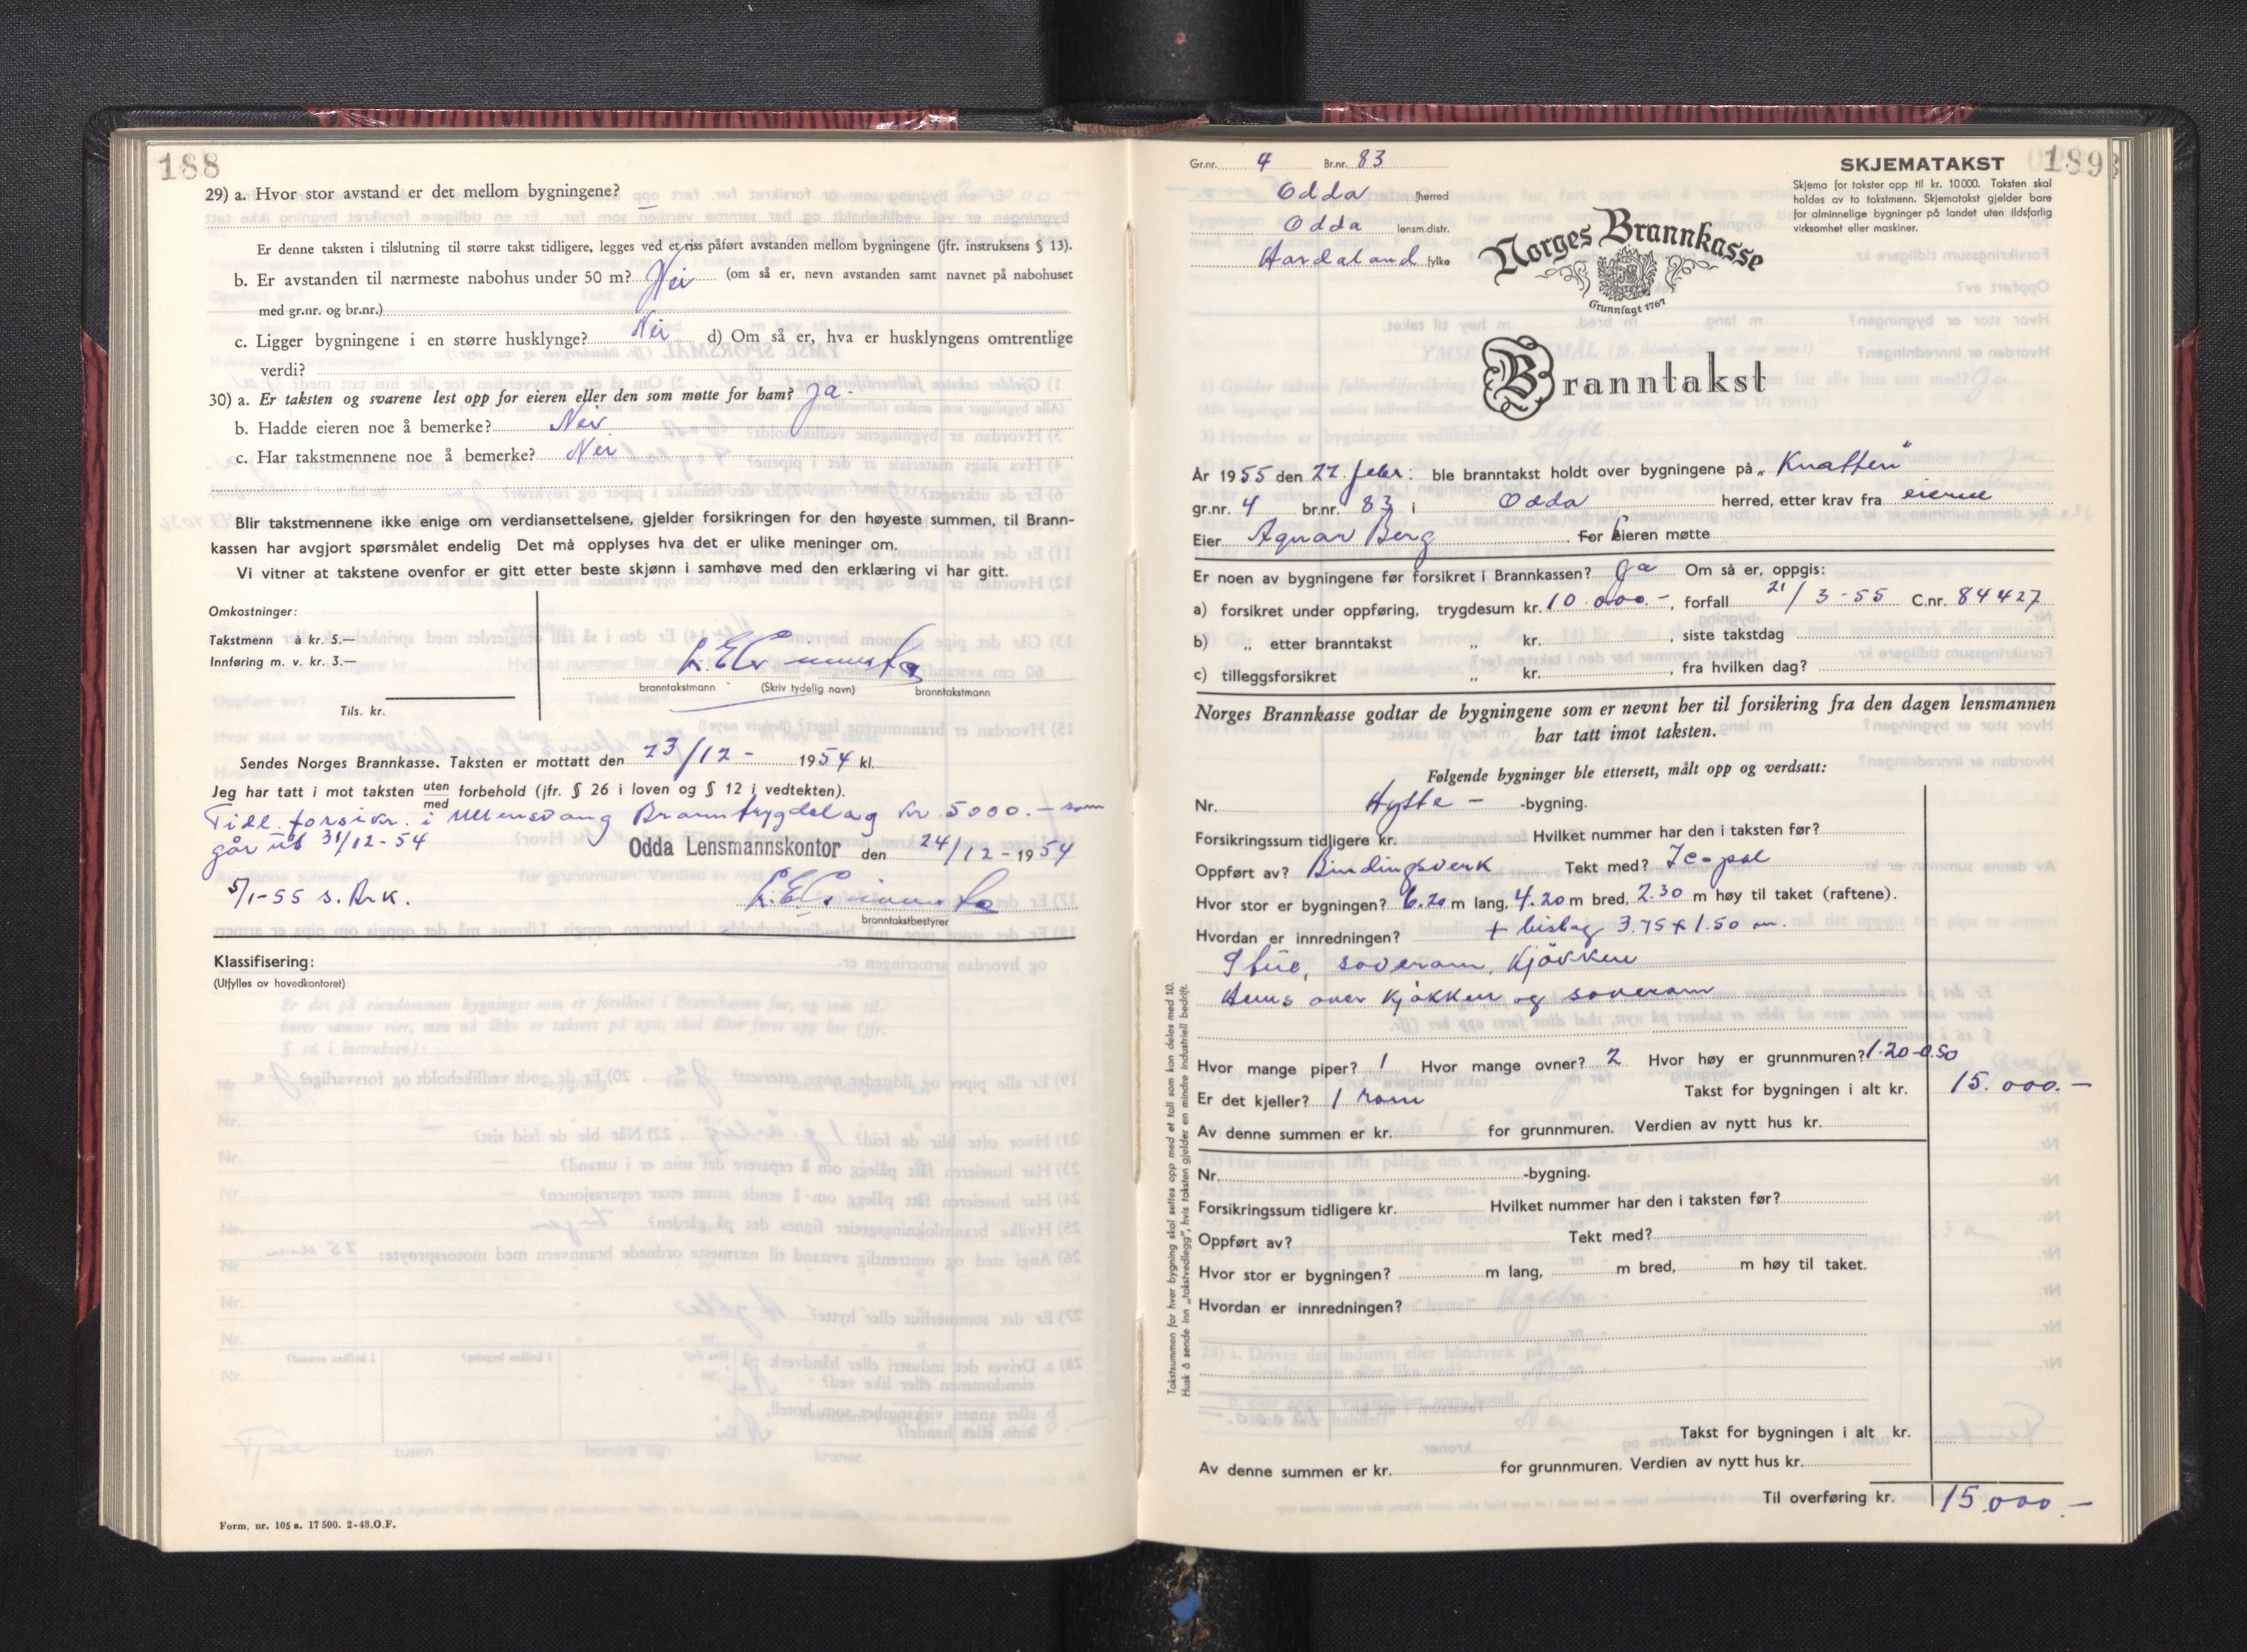 188
29) a. Hvor stor avstand er det mellom bygningene? —
Er denne taksten i tilslutning til større takst tidligere, legges ved et riss påført avstanden mellom bygningene (jfr. instruksens § 13).
b. Er avstanden til nærmeste nabohus under 50 m? Nei (om så er, nevn avstanden samt navnet på nabohuset
med gr.nr. og br.nr.)
c. Ligger bygningene i en større husklynge? Nei d) Om så er, hva er husklyngens omtrentlige
verdi?
30) a. Er taksten og svarene lest opp for eieren eller den som møtte for ham? Ja.
b. Hadde eieren noe å bemerke? Nei
c. Har takstmennene noe å bemerke? Nei
Blir takstmennene ikke enige om verdiansettelsene, gjelder forsikringen for den høyeste summen, til Brann-
kassen har avgjort spørsmålet endelig Det må opplyses hva det er ulike meninger om.
Vi vitner at takstene ovenfor er gitt etter beste skjønn i samhøve med den erklæring vi har gitt.
Omkostninger:
Takstmenn à kr. 5.—
Innføring m. v. kr. 3.—
branntakstmann (Skriv tydelig navn) branntakstmann
Tils. kr.
Sendes Norges Brannkasse. Taksten er mottatt den 23/12 - 1954 kl.
Jeg har tatt i mot taksten uten med forbehold (jfr. § 26 i loven og § 12 i vedtekten).
Tidl. forsikr. i Ullensvang Branntrygdelag kr. 5000.— som
går ut 31/12-54
Odda Lensmannskontor den 24/12-1954
5/1-55 s. Brk.
branntakstbestyrer
Klassifisering:
(Utfylles av hovedkontoret)
Form. nr. 105 a. 17 500. 2-48.O.F.
Gr.nr. 4 Br.nr. 83
Odda herred
Odda lensm.distr.
Hordaland fylke
SKJEMATAKST
189
Skjema for takster opp til kr. 10 000. Taksten skal
holdes av to takstmenn. Skjematakst gjelder bare
for alminnelige bygninger på landet uten ildsfarlig
virksomhet eller maskiner.
Norges Brannkasse
Grunnlagt 1767
Branntakst
År 1955 den 22. febr: ble branntakst holdt over bygningene på „Knatten"
gr.nr. 4 br.nr. 83 i Odda herred, etter krav fra eieren
Eier Agnar Berg For Eieren møtte
Er noen av bygningene før forsikret i Brannkassen? Ja Om så er, oppgis:
a) forsikret under oppføring, trygdesum kr. 10.000.-, forfall 21/3-55 C.nr. 84427
b) „ etter branntakst „ kr. , siste takstdag
c) tilleggsforsikret „ kr. , fra hvilken dag?
Norges Brannkasse godtar de bygningene som er nevnt her til forsikring fra den dagen lensmannen
har tatt imot taksten.
Følgende bygninger ble ettersett, målt opp og verdsatt:
Nr. Hytte - -bygning.
Forsikringssum tidligere kr. Hvilket nummer har den i taksten før?
Oppført av? Bindingsverk Tekt med? Icopal
Hvor stor er bygningen? 6.20 m lang, 4.20 m bred, 2.30 m høy til taket (raftene).
Hvordan er innredningen? + bislag 3.75 x 1.50 m.
Stue, soverom, kjøkken
Hems over kjøkken og soverom
Hvor mange piper? 1 Hvor mange ovner? 2 Hvor høy er grunnmuren? 1.20-0.50
Er det kjeller? 1 rom Takst for bygningen i alt kr. 15.000.—
Av denne summen er kr. for grunnmuren. Verdien av nytt hus kr.
Nr. -bygning.
Forsikringssum tidligere kr. Hvilket nummer har den i taksten før?
Oppført av? Tekt med?
Hvor stor er bygningen? m lang, m bred, m høy til taket.
Hvordan er innredningen?
Takst for bygningen i alt kr.
Av denne summen er kr. for grunnmuren. Verdien av nytt hus kr.
Til overføring kr. 15.000.—
Takstsummen for hver bygning skal settes opp med et tall som kan deles med 10.
Husk å sende inn „takstvedlegg", hvis taksten gjelder en mindre industriell bedrift.